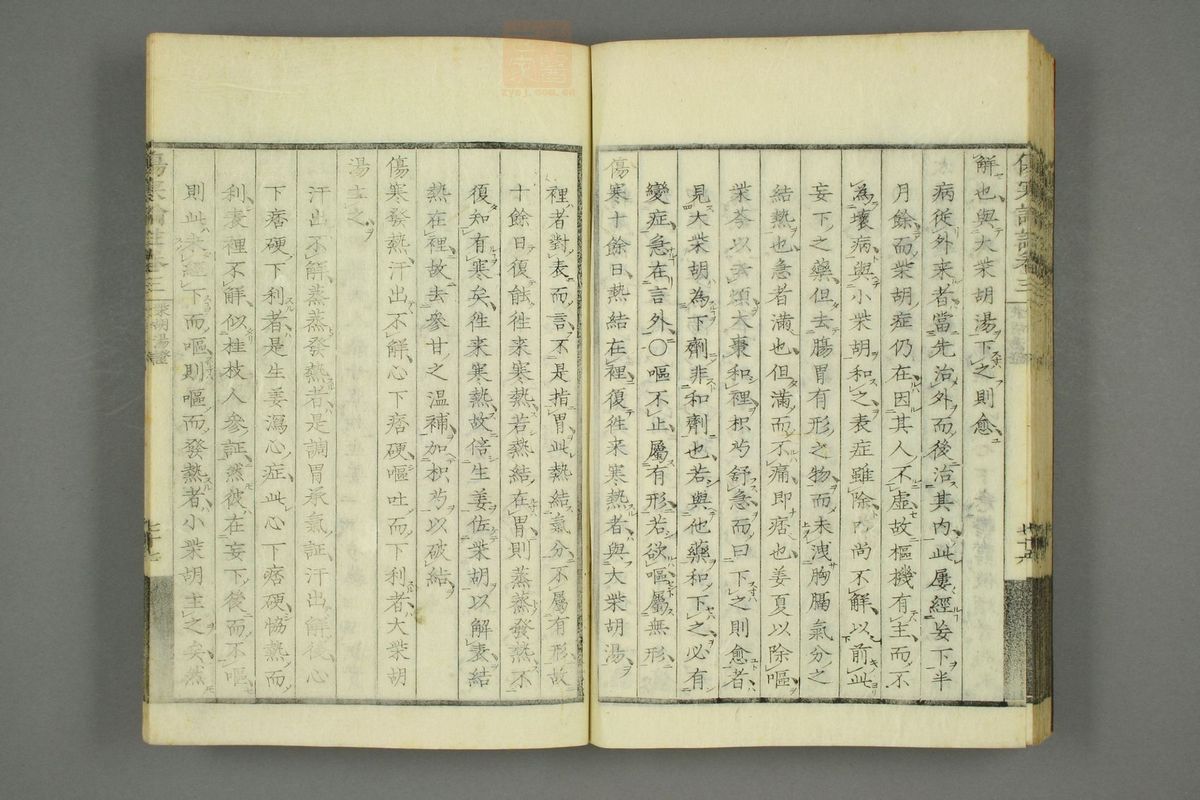 解也與大柴胡湯下之則愈
病從外來者當先治外而後治其内此屢經妄下半
月餘而柴胡症仍在因其人不虛故樞機有主而不
為壞病與小柴胡和之表症雖除内尚不解以前此
妄下之藥但去腸胃有形之物而未洩胸膈氣分之
結熱也急者滿也但滿而不痛即痞也姜夏以除嘔
柴芩以去煩大棗和裡枳芍舒急而曰下之則愈者
見大柴胡為下劑非和劑也若與他藥和下之必有
變症急在言外〇嘔不止屬有形若欲嘔屬無形
傷寒十餘日熱結在裡復徃来寒熱者與大柴胡湯
裡者對表而言不是指胃此熱結氣分不屬有形故
十餘日復能徃来寒熱若熱結在胃則蒸蒸發熱不
復知有寒矣徃来寒熱故倍生姜佐柴胡以解表結
熱在裡故去參甘之温補加枳芍以破結
傷寒發熱汗出不解心下痞硬嘔吐而下利者大柴胡
湯主之
汗出不解蒸蒸發熱者是調胃承氣証汗出解後心
下痞硬下利者是生姜瀉心症此心下痞硬恊熱而
利表裡不解似桂枝人參証然彼在妄下後而不嘔
則此未經下而嘔則嘔而發熱者小柴胡主之矣然
傷寒論註卷三
柴胡湯證
zysj.com.cn